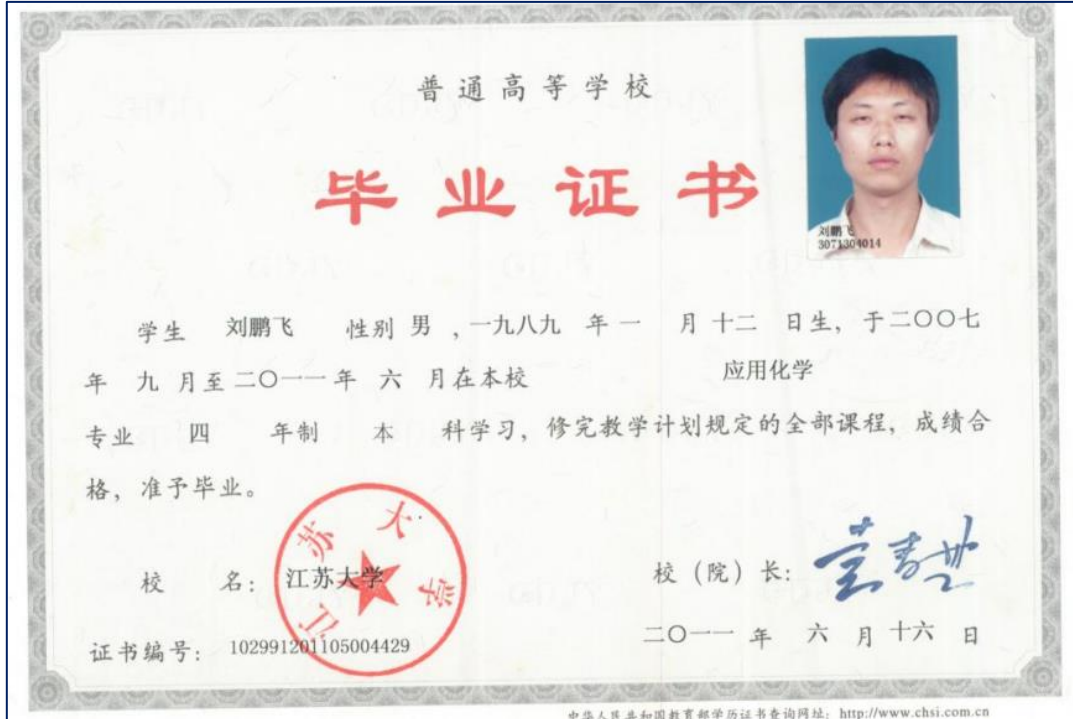 普通高等学校
毕业证书
刘鹏飞
3071304014
学生 刘鹏飞 性别 男 ，一九八九 年 一 月 十二 日生，于二〇〇七
年 九 月至 二〇一一 年 六 月在本校 应用化学
专业 四 年制 本 科学习，修完教学计划规定的全部课程，成绩合
格，准予毕业。
江苏大学
校 名： 江苏大学
校（院）长：
证书编号： 102991201105004429
二〇一一 年 六 月 十六 日
中华人民共和国教育部学历证书查询网址：http://www.chsi.com.cn